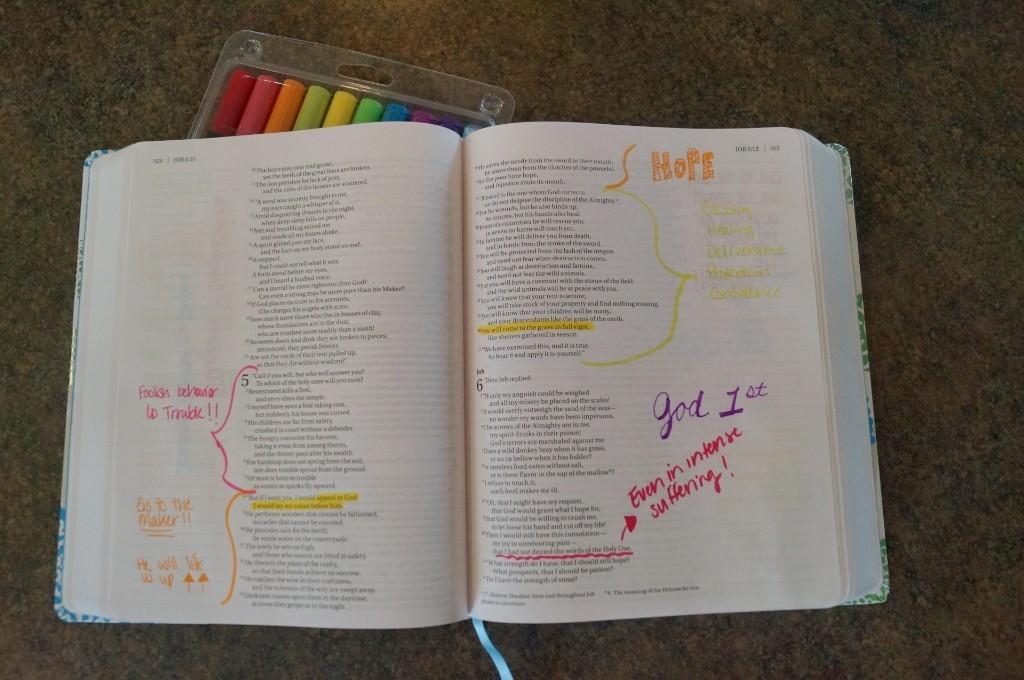 524 | JOB 4:10
10 The lions may roar and growl,
yet the teeth of the great lions are broken.
11 The lion perishes for lack of prey,
and the cubs of the lioness are scattered.
12 "A word was secretly brought to me,
my ears caught a whisper of it.
13 Amid disquieting dreams in the night,
when deep sleep falls on people,
14 fear and trembling seized me
and made all my bones shake.
15 A spirit glided past my face,
and the hair on my body stood on end.
16 It stopped,
but I could not tell what it was.
A form stood before my eyes,
and I heard a hushed voice:
17 'Can a mortal be more righteous than God?
Can even a strong man be more pure than his Maker?
18 If God places no trust in his servants,
if he charges his angels with error,
19 how much more those who live in houses of clay,
whose foundations are in the dust,
who are crushed more readily than a moth!
20 Between dawn and dusk they are broken to pieces;
unnoticed, they perish forever.
21 Are not the cords of their tent pulled up,
so that they die without wisdom?'
5 "Call if you will, but who will answer you?
To which of the holy ones will you turn?
2 Resentment kills a fool,
and envy slays the simple.
3 I myself have seen a fool taking root,
but suddenly his house was cursed.
4 His children are far from safety,
crushed in court without a defender.
5 The hungry consume his harvest,
taking it even from among thorns,
and the thirsty pant after his wealth.
6 For hardship does not spring from the soil,
nor does trouble sprout from the ground.
7 Yet man is born to trouble
as surely as sparks fly upward.
8 "But if I were you, I would appeal to God;
I would lay my cause before him.
9 He performs wonders that cannot be fathomed,
miracles that cannot be counted.
10 He provides rain for the earth;
he sends water on the countryside.
11 The lowly he sets on high,
and those who mourn are lifted to safety.
12 He thwarts the plans of the crafty,
so that their hands achieve no success.
13 He catches the wise in their craftiness,
and the schemes of the wily are swept away.
14 Darkness comes upon them in the daytime;
at noon they grope as in the night.
Foolish behavior
Lo Trouble!!
Go to the
Maker!!
He will lift
us up
JOB 6:12 | 525
15 He saves the needy from the sword in their mouth;
he saves them from the clutches of the powerful.
16 So the poor have hope,
and injustice shuts its mouth.
17 "Blessed is the one whom God corrects;
so do not despise the discipline of the Almighty.
18 For he wounds, but he also binds up;
he injures, but his hands also heal.
19 From six calamities he will rescue you;
in seven no harm will touch you.
20 In famine he will deliver you from death,
and in battle from the stroke of the sword.
21 You will be protected from the lash of the tongue,
and need not fear when destruction comes.
22 You will laugh at destruction and famine,
and need not fear the wild animals.
23 For you will have a covenant with the stones of the field,
and the wild animals will be at peace with you.
24 You will know that your tent is secure;
you will take stock of your property and find nothing missing.
25 You will know that your children will be many,
and your descendants like the grass of the earth.
26 You will come to the grave in full vigor,
like sheaves gathered in season.
27 "We have examined this, and it is true.
So hear it and apply it to yourself."
Job
6 Then Job replied:
2 "If only my anguish could be weighed
and all my misery be placed on the scales!
3 It would surely outweigh the sand of the seas—
no wonder my words have been impetuous.
4 The arrows of the Almighty are in me,
my spirit drinks in their poison;
God's terrors are marshaled against me.
5 Does a wild donkey bray when it has grass,
or an ox bellow when it has fodder?
6 Is tasteless food eaten without salt,
or is there flavor in the sap of the mallow?
7 I refuse to touch it;
such food makes me ill.
8 "Oh, that I might have my request,
that God would grant what I hope for,
9 that God would be willing to crush me,
to let loose his hand and cut off my life!
10 Then I would still have this consolation—
my joy in unrelenting pain—
that I had not denied the words of the Holy One.
11 "What strength do I have, that I should still hope?
What prospects, that I should be patient?
12 Do I have the strength of stone?
17 Hebrew Shaddai; here and throughout Job 6 The meaning of the Hebrew for this
phrase is uncertain.
HOPE
Blessing
Healing
Deliverance
Protection
Confidence
God 1st
Even in intense
suffering!